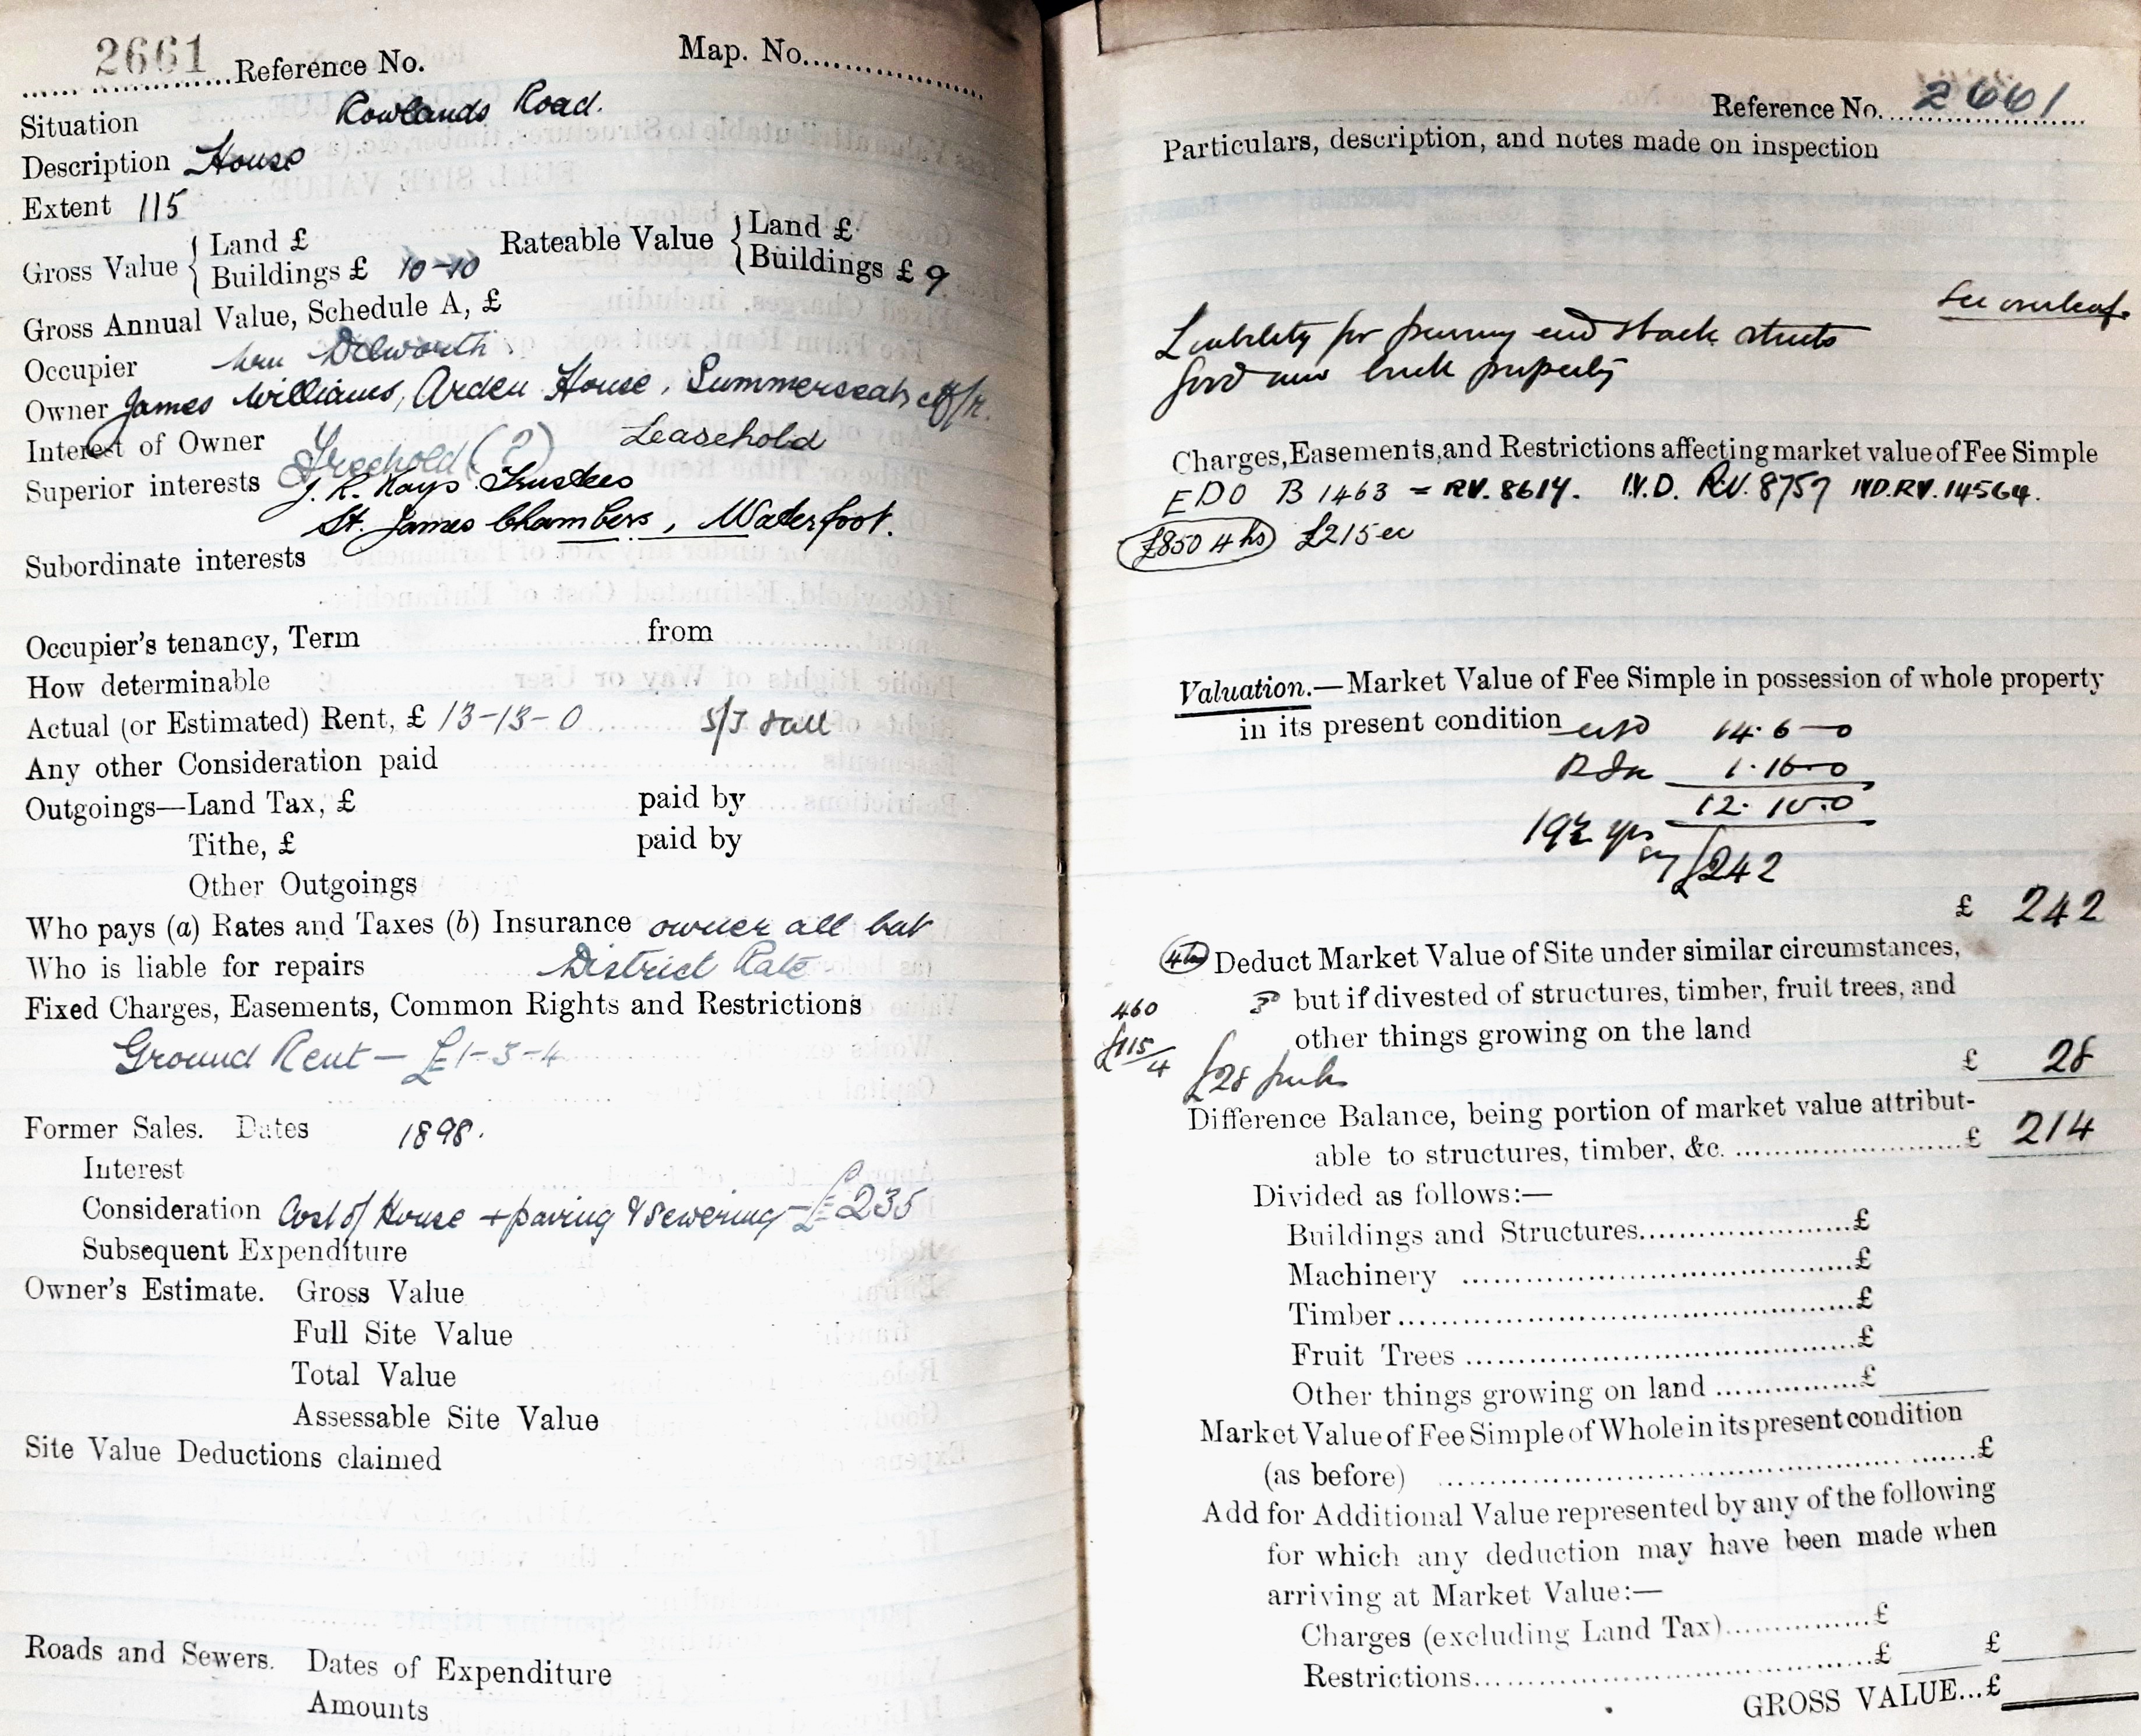 2661 Reference No. Map. No.
Situation Rowlands Road.
Description House
Extent 115
Gross Value { Land £ Rateable Value { Land £
Buildings £ 10-10 Buildings £ 9
Gross Annual Value, Schedule A, £
Occupier Wm Dilworth
Owner James Williams, Arden House, Summerseat
Interest of Owner Freehold (?) Leasehold
Superior interests J. R. Kays Trustees
St. James Chambers, Waterfoot.
Subordinate interests
Occupier's tenancy, Term from
How determinable
Actual (or Estimated) Rent, £ 13-13-0
Any other Consideration paid
Outgoings—Land Tax, £ paid by
Tithe, £ paid by
Other Outgoings
Who pays (a) Rates and Taxes (b) Insurance owner all but
Who is liable for repairs District Rate
Fixed Charges, Easements, Common Rights and Restrictions
Ground Rent — £1-3-4
Former Sales. Dates 1898.
Interest
Consideration Cost of House + paving & sewering — £235
Subsequent Expenditure
Owner's Estimate. Gross Value
Full Site Value
Total Value
Assessable Site Value
Site Value Deductions claimed
Roads and Sewers. Dates of Expenditure
Amounts
Reference No. 2661
Particulars, description, and notes made on inspection
See overleaf.
Liability for paving end & back streets
Good new brick property
Charges, Easements, and Restrictions affecting market value of Fee Simple
EDO B 1463 = RV. 8614. I.V.D. RV. 8757 IVD.RV. 14564.
£850 4 hs £215 ea
Valuation.—Market Value of Fee Simple in possession of whole property
in its present condition 14.6-0
1.16-0
12.10.0
19½ yrs
say £242
£ 242
Deduct Market Value of Site under similar circumstances,
but if divested of structures, timber, fruit trees, and
460 other things growing on the land
£115/4 £28 £ 28
Difference Balance, being portion of market value attribut-
able to structures, timber, &c. £ 214
Divided as follows:—
Buildings and Structures £
Machinery £
Timber £
Fruit Trees £
Other things growing on land £
Market Value of Fee Simple of Whole in its present condition
(as before) £
Add for Additional Value represented by any of the following
for which any deduction may have been made when
arriving at Market Value:—
Charges (excluding Land Tax) £
Restrictions £ £
GROSS VALUE...£